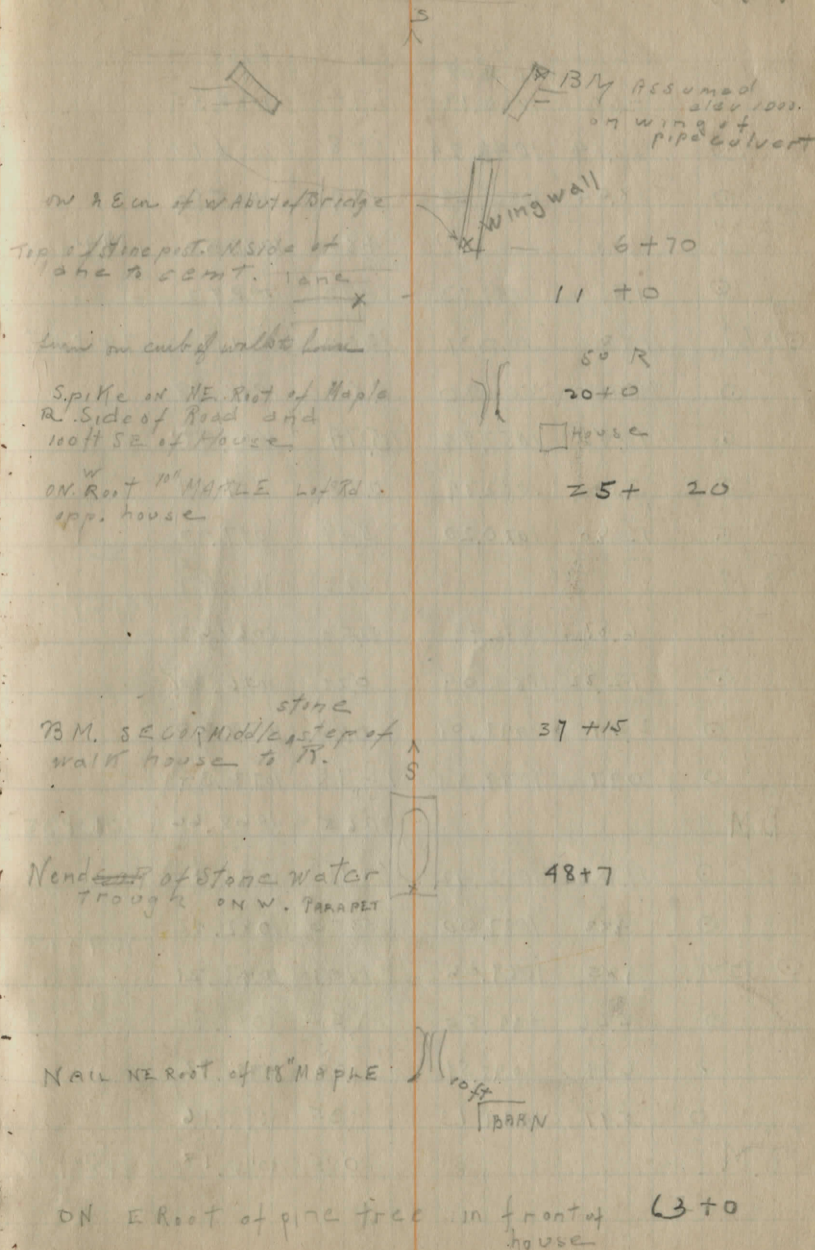 S
BM Assumed
elev 1000.
on wing of
pipe culvert
on N E cor of W Abut of Bridge
wing wall
Top of stone post. N side of
lane to cemt.
lane
6+70
11 +0
turn on curb of walk to house
50 R
Spike on NE Root of Maple
R. Side of Road and
100 ft SE of House
20+0
House
W
ON Root 10" MAPLE L of Rd.
opp. house
25+ 20
stone
BM. SE COR Middle step of
walk house to R.
37 +15
S
N end of Stone water
trough ON W. PARAPET
48+7
NAIL NE Root of 18" MAPLE
10 ft
BARN
ON E Root of pine tree in front of
house
63+0